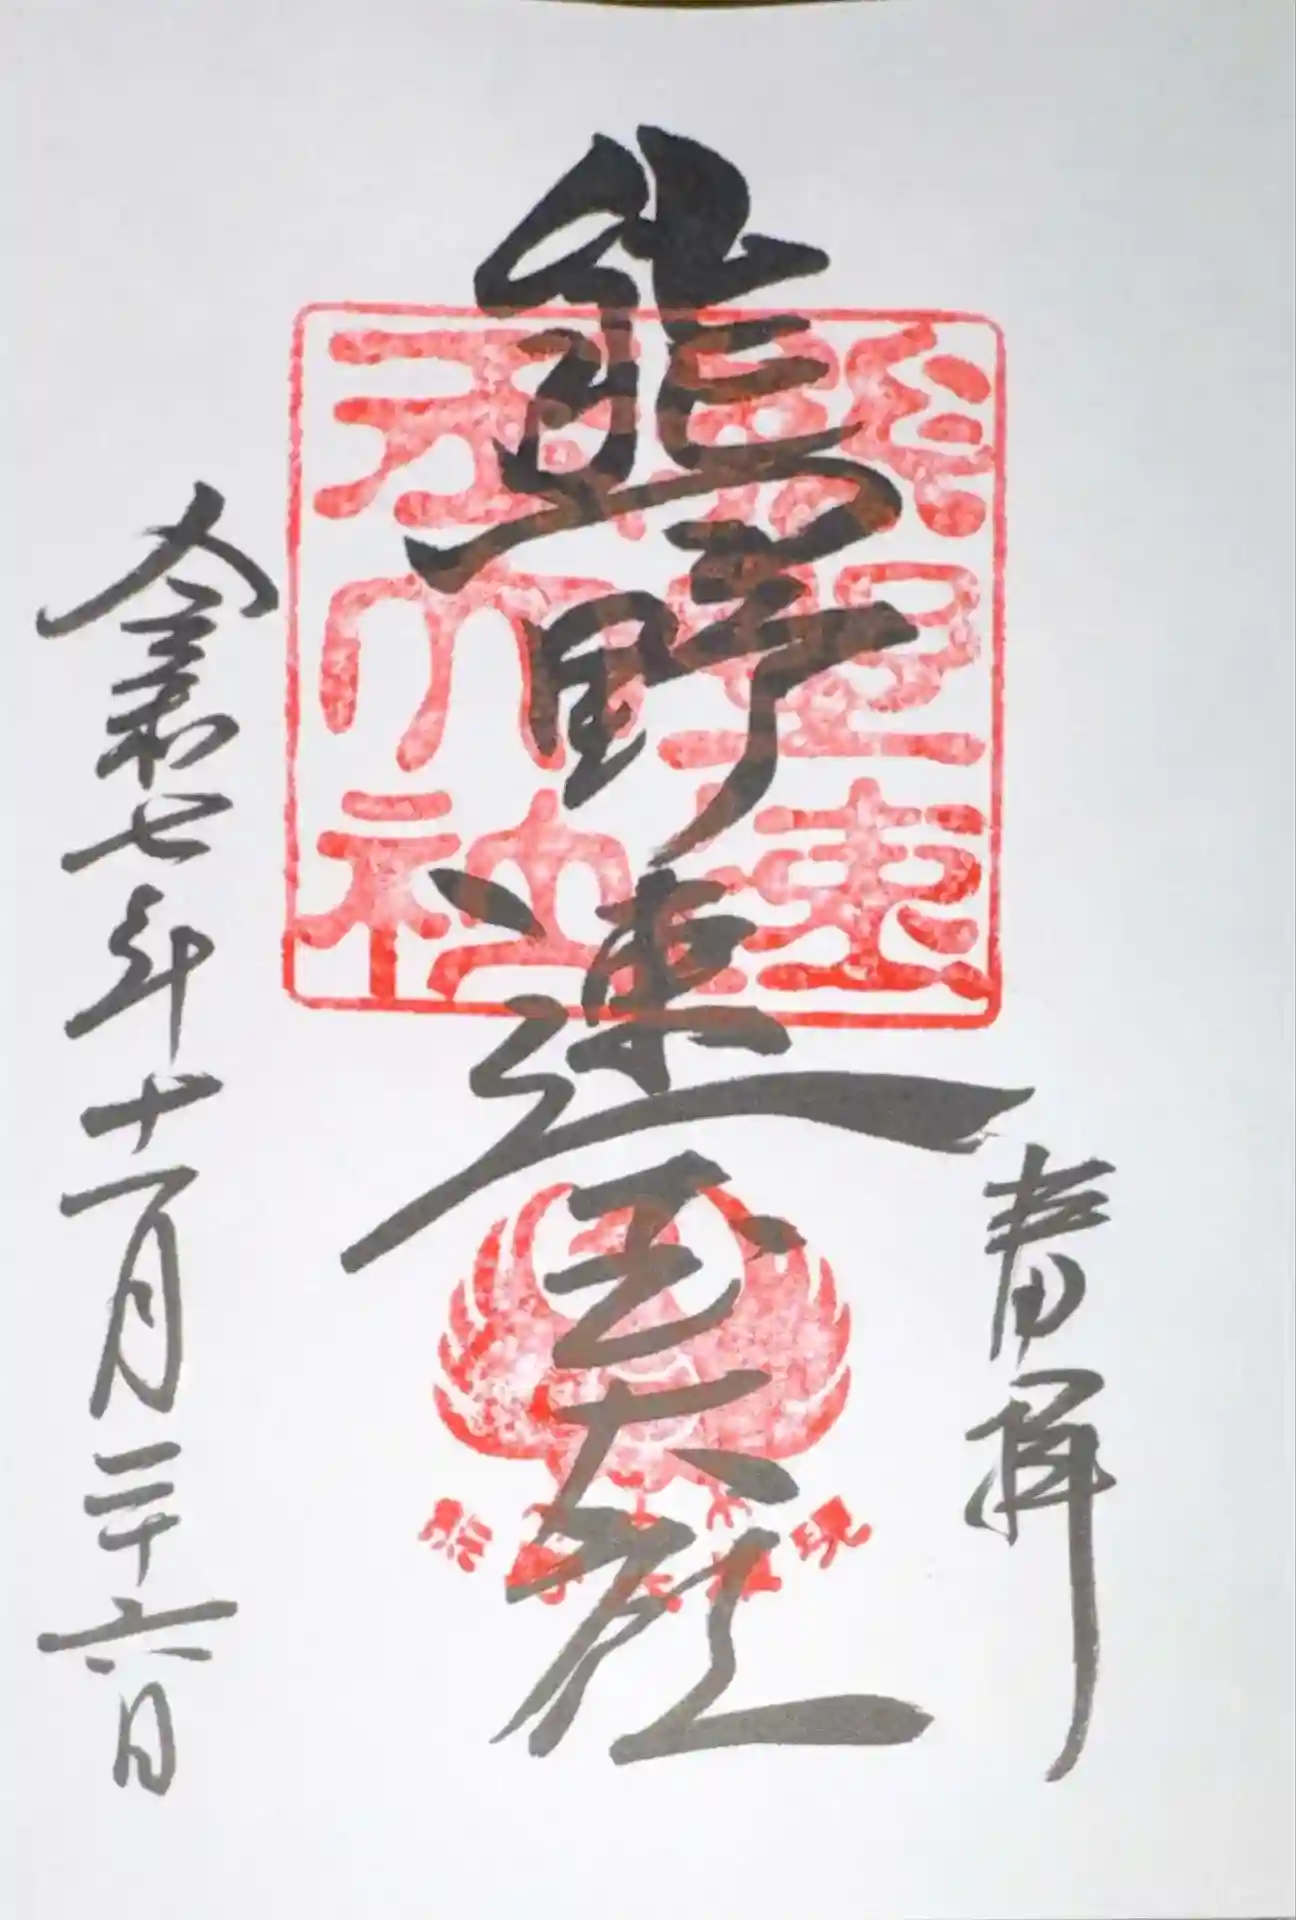 奉拝
熊野速玉大社
令和七年十一月二十六日
熊野速玉大社
熊野大権現